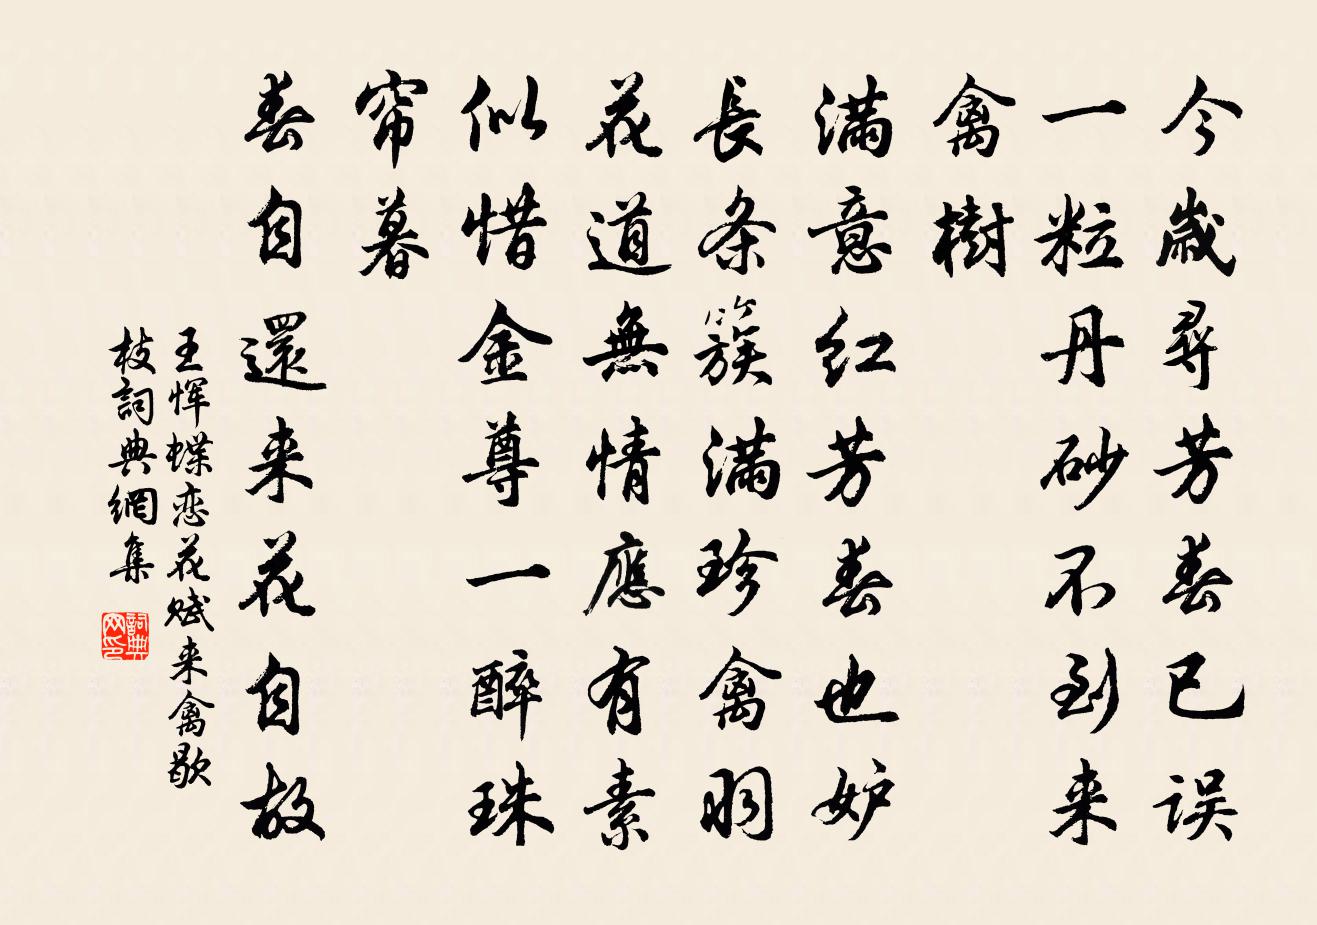 今歲尋芳春已误
一粒丹砂不到来
禽樹
滿意红芳春也妒
長条簇滿珍禽羽
花道無情應有素
似惜金尊一醉珠
帘暮
春自還来花自故
王恽蝶恋花赋来禽歇
枝詞典網集
詞典
网印